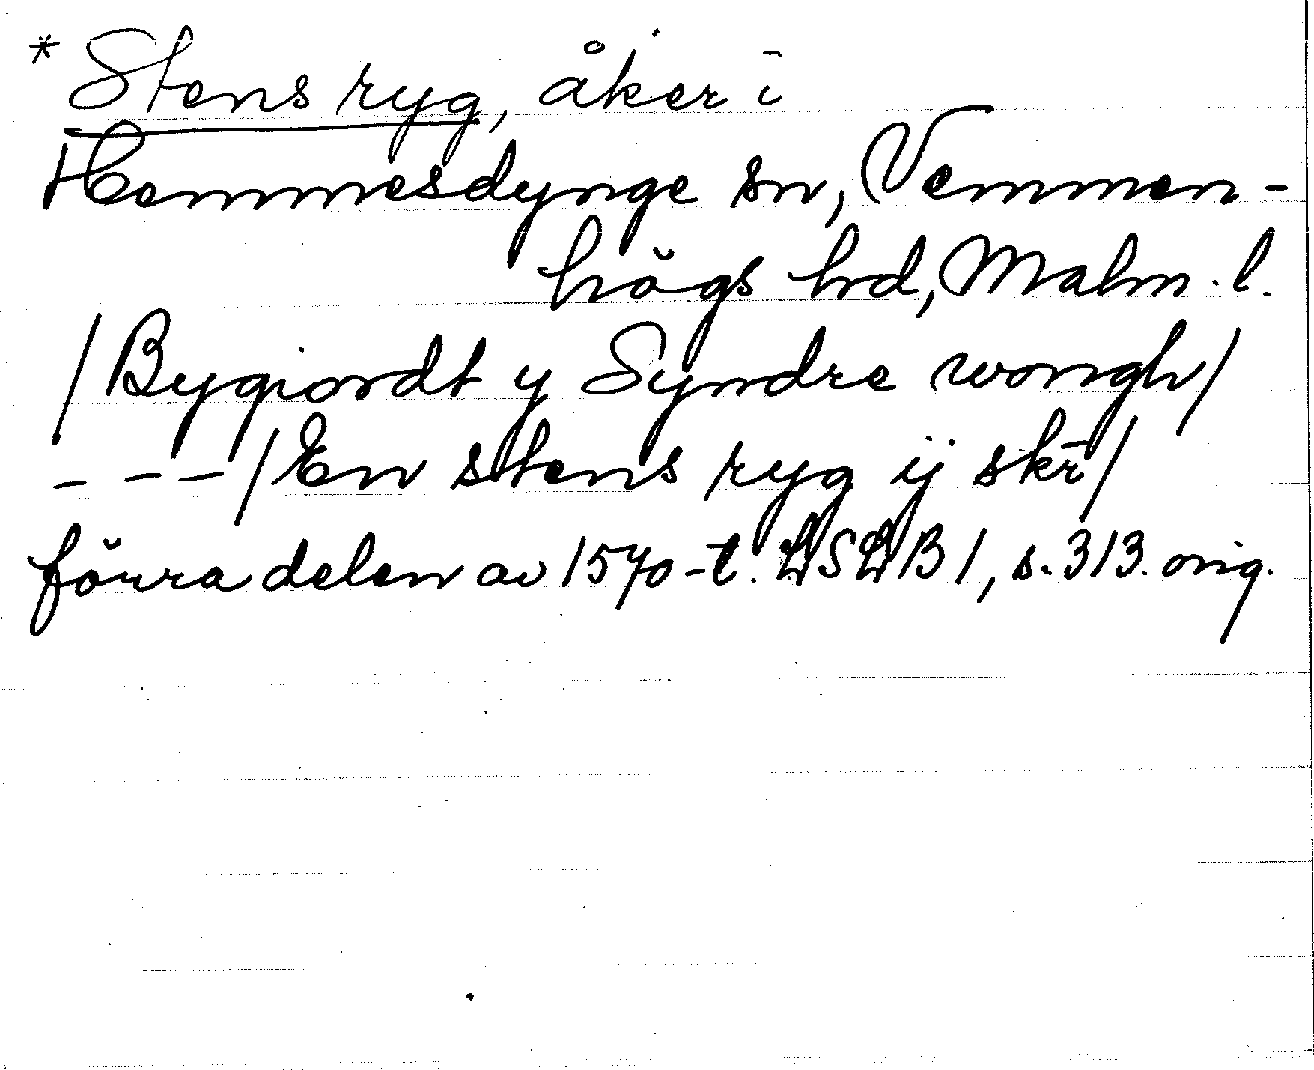 * Stens ryg, åker i
Hemmesdynge sn, Vemmen-
högs hd, Malm. l.
/Bygiordt y Syndre wongh/
- - - /En stens ryg ij skr̄/
förra delen av 1570-t. LSLB 1, s. 313. orig.